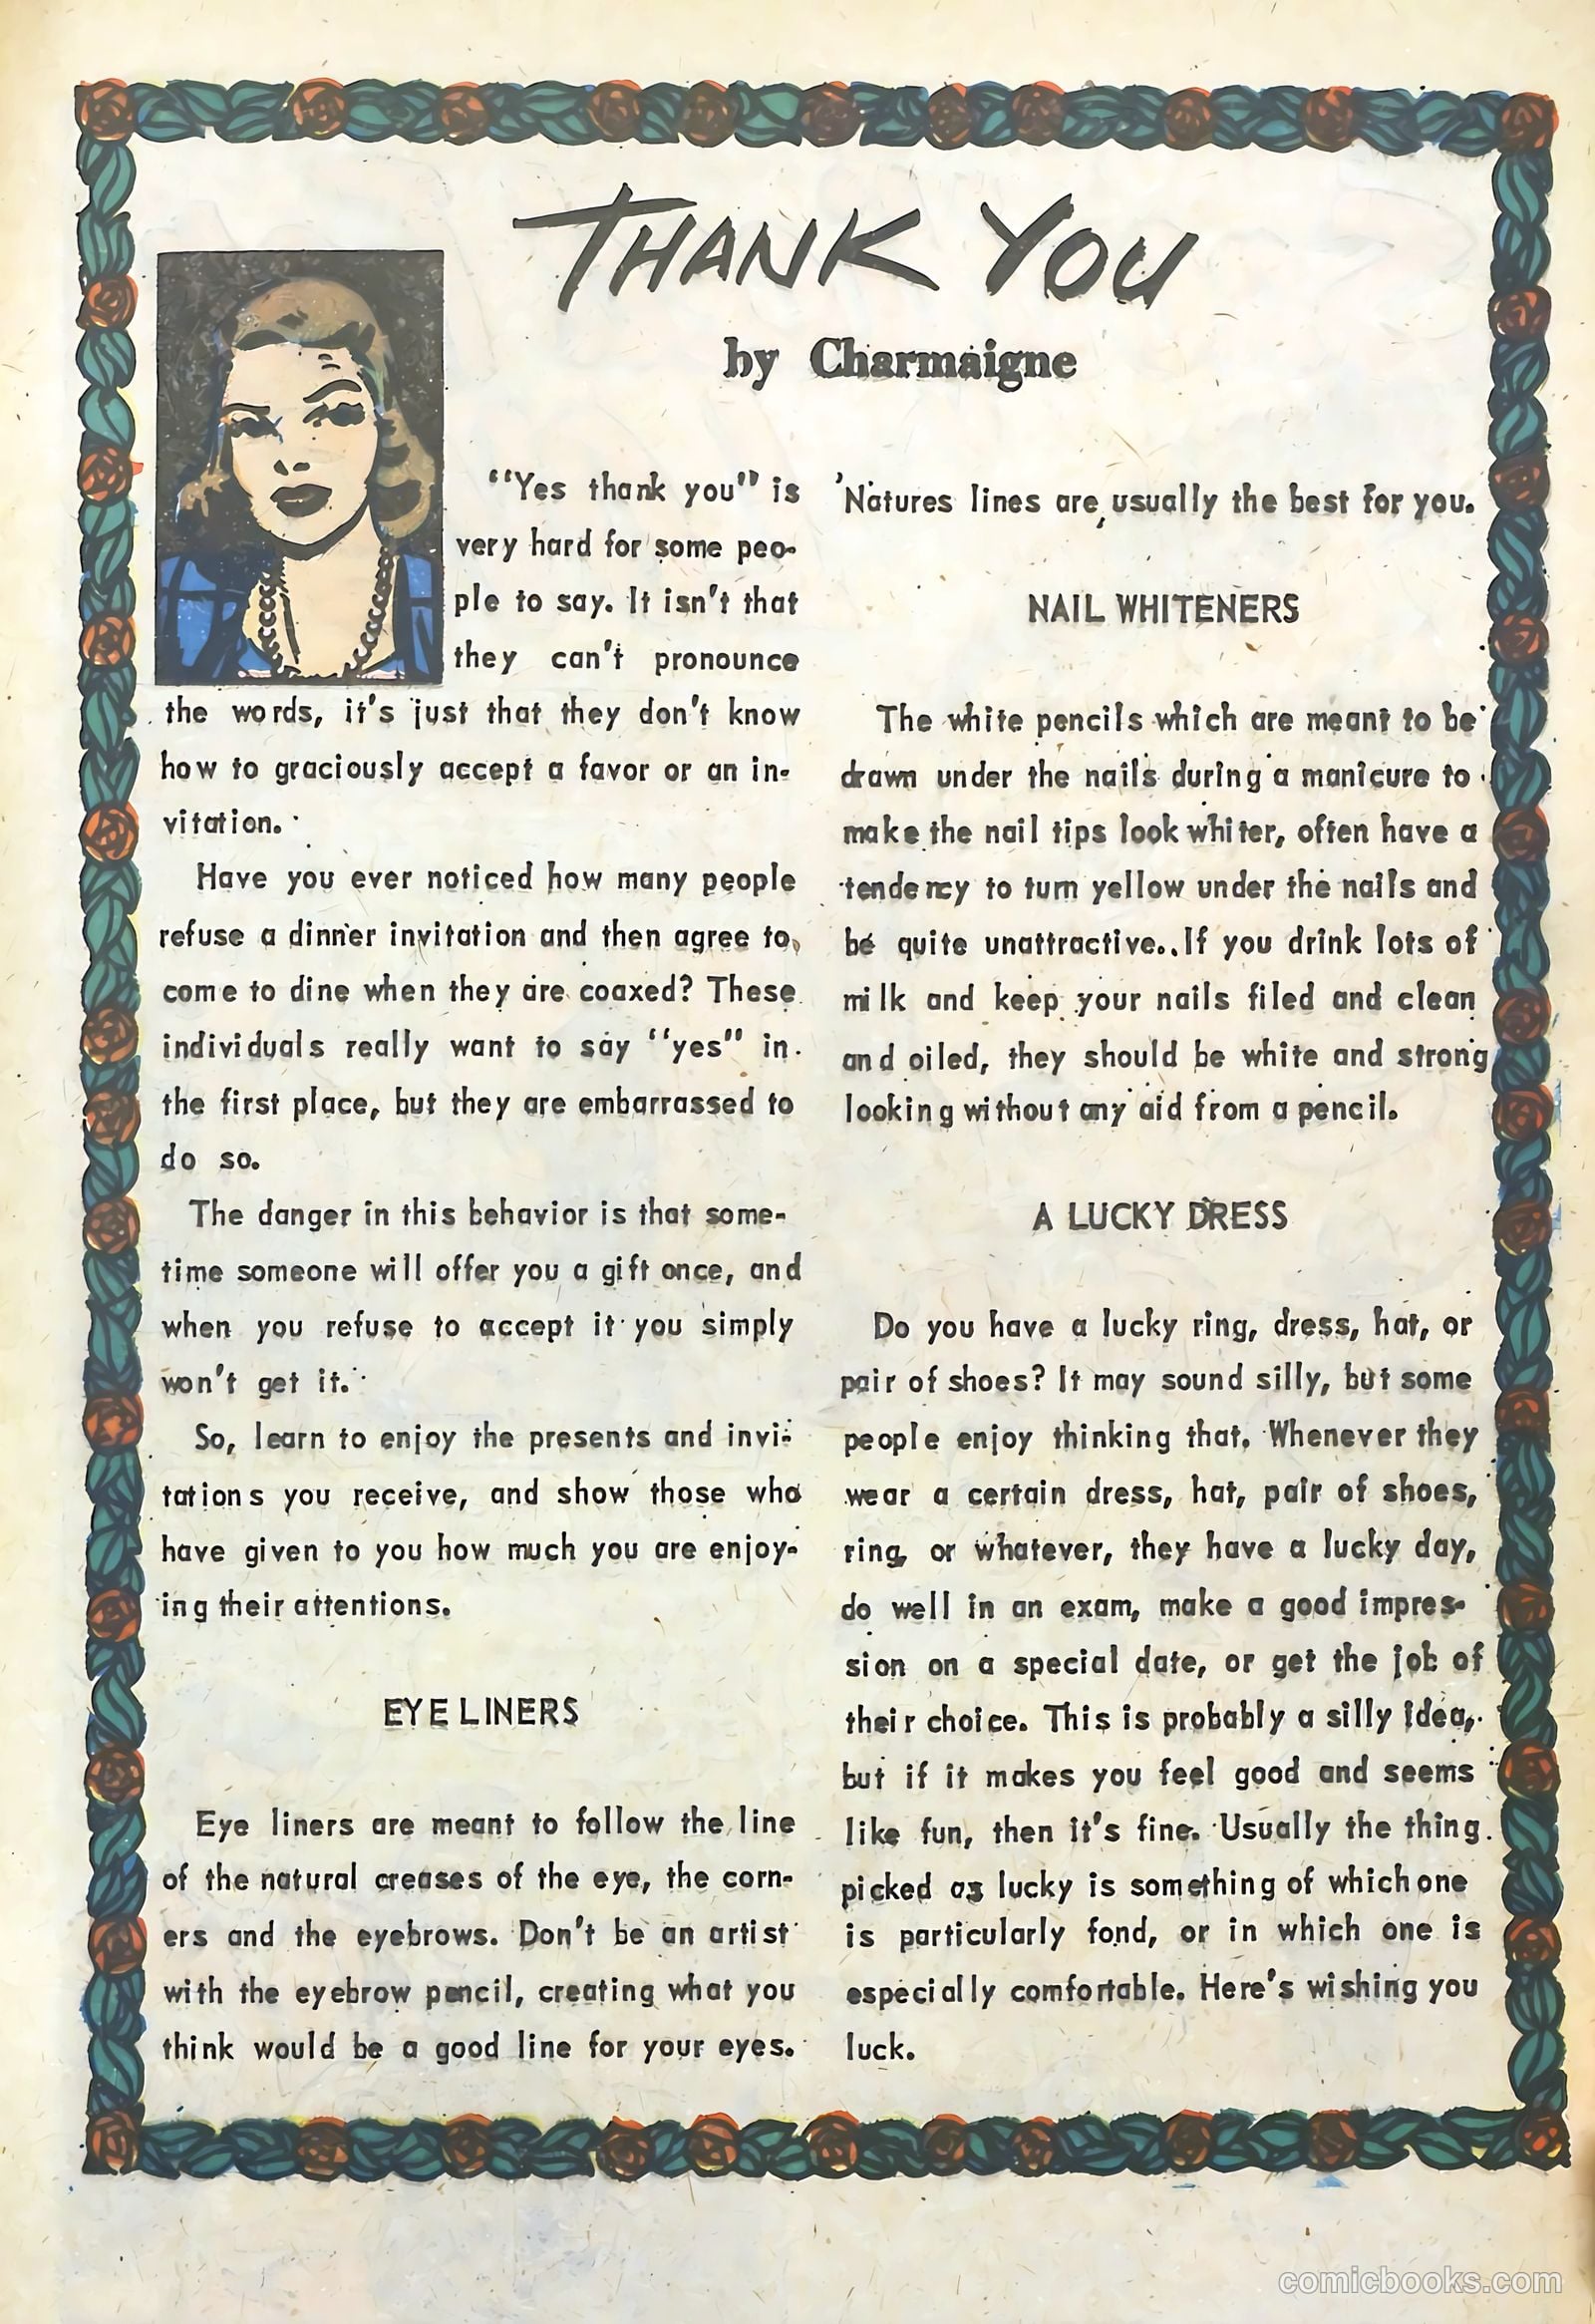 THANK YOU
by Charmaigne
"Yes thank you" is
very hard for some peo-
ple to say. It isn't that
they can't pronounce
the words, it's just that they don't know
how to graciously accept a favor or an in-
vitation.
Have you ever noticed how many people
refuse a dinner invitation and then agree to
come to dine when they are coaxed? These
individuals really want to say "yes" in
the first place, but they are embarrassed to
do so.
The danger in this behavior is that some-
time someone will offer you a gift once, and
when you refuse to accept it you simply
won't get it.
So, learn to enjoy the presents and invi-
tations you receive, and show those who
have given to you how much you are enjoy-
ing their attentions.
EYE LINERS
Eye liners are meant to follow the line
of the natural creases of the eye, the corn-
ers and the eyebrows. Don't be an artist
with the eyebrow pencil, creating what you
think would be a good line for your eyes.
Natures lines are usually the best for you.
NAIL WHITENERS
The white pencils which are meant to be
drawn under the nails during a manicure to
make the nail tips look whiter, often have a
tendency to turn yellow under the nails and
be quite unattractive. If you drink lots of
milk and keep your nails filed and clean
and oiled, they should be white and strong
looking without any aid from a pencil.
A LUCKY DRESS
Do you have a lucky ring, dress, hat, or
pair of shoes? It may sound silly, but some
people enjoy thinking that. Whenever they
wear a certain dress, hat, pair of shoes,
ring, or whatever, they have a lucky day,
do well in an exam, make a good impres-
sion on a special date, or get the job of
their choice. This is probably a silly idea,
but if it makes you feel good and seems
like fun, then it's fine. Usually the thing
picked as lucky is something of which one
is particularly fond, or in which one is
especially comfortable. Here's wishing you
luck.
comicbooks.com